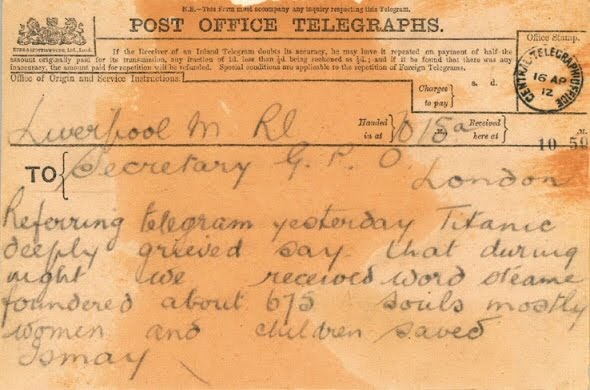 N.B.—This Form must accompany any inquiry respecting this Telegram.
POST OFFICE TELEGRAPHS.
If the Receiver of an Inland Telegram doubts its accuracy, he may have it repeated on payment of half the
amount originally paid for its transmission, any fraction of 1d. less than ½d. being reckoned as ½d.; and if it be found that there was any
inaccuracy, the amount paid for repetition will be refunded. Special conditions are applicable to the repetition of Foreign Telegrams.
Office Stamp.
CENTRAL TELEGRAPH OFFICE
16 AP
12
Office of Origin and Service Instructions.
Charges
to pay
s. d.
Liverpool M RI
Handed
in at
1015a
M.,
Received
here at
10 59
M.
TO
Secretary G. P. O.
London
Referring telegram yesterday Titanic
deeply grieved say that during
night we received word steame
foundered about 675 souls mostly
women and children saved
Ismay